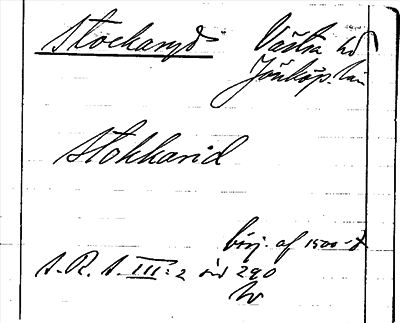 Stockaryd Västra hd
Jönköp. län
Stokkarid
börj. af 1500-t
S.R.S. III:2 sid 290